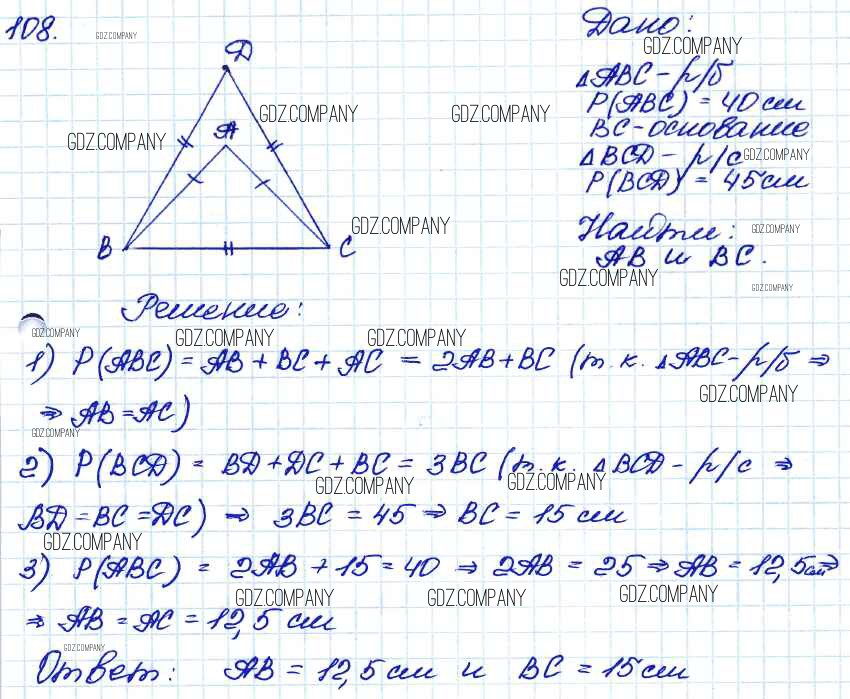 108.
GDZ.COMPANY
Дано:
GDZ.COMPANY
D
△ABC - р/б
P(ABC) = 40 см
GDZ.COMPANY
GDZ.COMPANY
BC - основание
A
GDZ.COMPANY
△BCD - р/с
GDZ.COMPANY
P(BCD) = 45 см
Найти:
GDZ.COMPANY
GDZ.COMPANY
B
C
AB и BC.
GDZ.COMPANY
GDZ.COMPANY
Решение:
GDZ.COMPANY
GDZ.COMPANY
GDZ.COMPANY
1) P(ABC) = AB + BC + AC = 2AB + BC (т.к. △ABC - р/б ⇒
GDZ.COMPANY
⇒ AB = AC)
GDZ.COMPANY
2) P(BCD) = BD + DC + BC = 3BC (т.к. △BCD - р/с ⇒
GDZ.COMPANY
GDZ.COMPANY
BD = BC = DC) ⇒ 3BC = 45 ⇒ BC = 15 см
GDZ.COMPANY
3) P(ABC) = 2AB + 15 = 40 ⇒ 2AB = 25 ⇒ AB = 12,5см ⇒
GDZ.COMPANY
GDZ.COMPANY
GDZ.COMPANY
⇒ AB = AC = 12,5 см
GDZ.COMPANY
Ответ: AB = 12,5 см и BC = 15 см